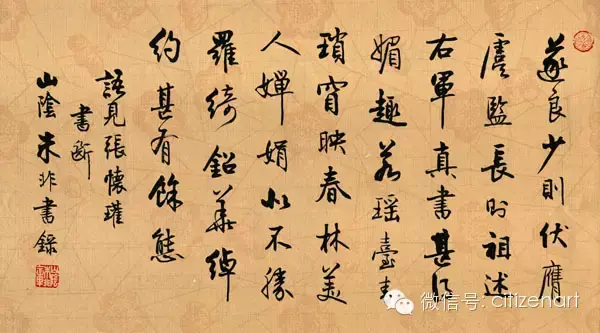 遂良少則伏膺
虞監長則祖述
右軍真書甚得
媚趣若瑶臺青
瑣窅映春林美
人嬋娟似不勝
羅綺鉛華綽
約甚有餘態
語見張懷瓘
書斷
山陰朱非書錄
微信号: citizenart